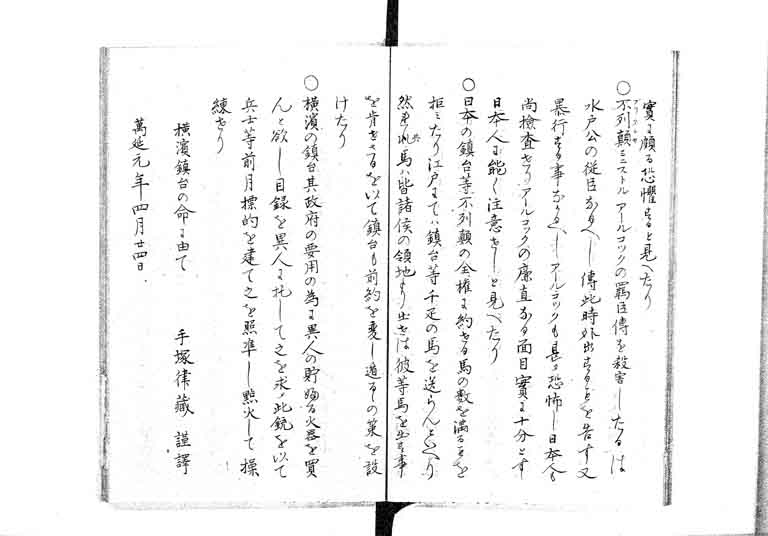 實ニ頗る恐懼せると見へたり
○不列顛ミニストルアールコックの羈臣傳を殺害したるは
ブリタニヤ
水戸公の従臣なるへし傳此時外出することを告す又
暴行する事なるへしアールコックも甚タ恐怖し日本人も
尚檢査せりアールコックの廉直なる面目實ニ十分とす
日本人に能く注意せしと見へたり
○日本の鎮台等不列顛の全権に約せる馬の数を満ることを
拒ミたり江戸にては鎮台等千疋の馬を送らんといへり
然れ共馬ハ皆諸侯の領地より出せは彼等馬を出す事
を肯せさるを以て鎮台も前約を変し遁るゝの策を設
けたり
○横濱の鎮台其政府の要用の為に異人の貯ゆる火器を買
んと欲し目録を異人に托して之を求ﾒ此銃を以て
兵士等前月標的を建て之を照準し點火して操
練せり
横濱鎮台の命に由て
手塚律藏 謹譯
萬延元年四月廿四日